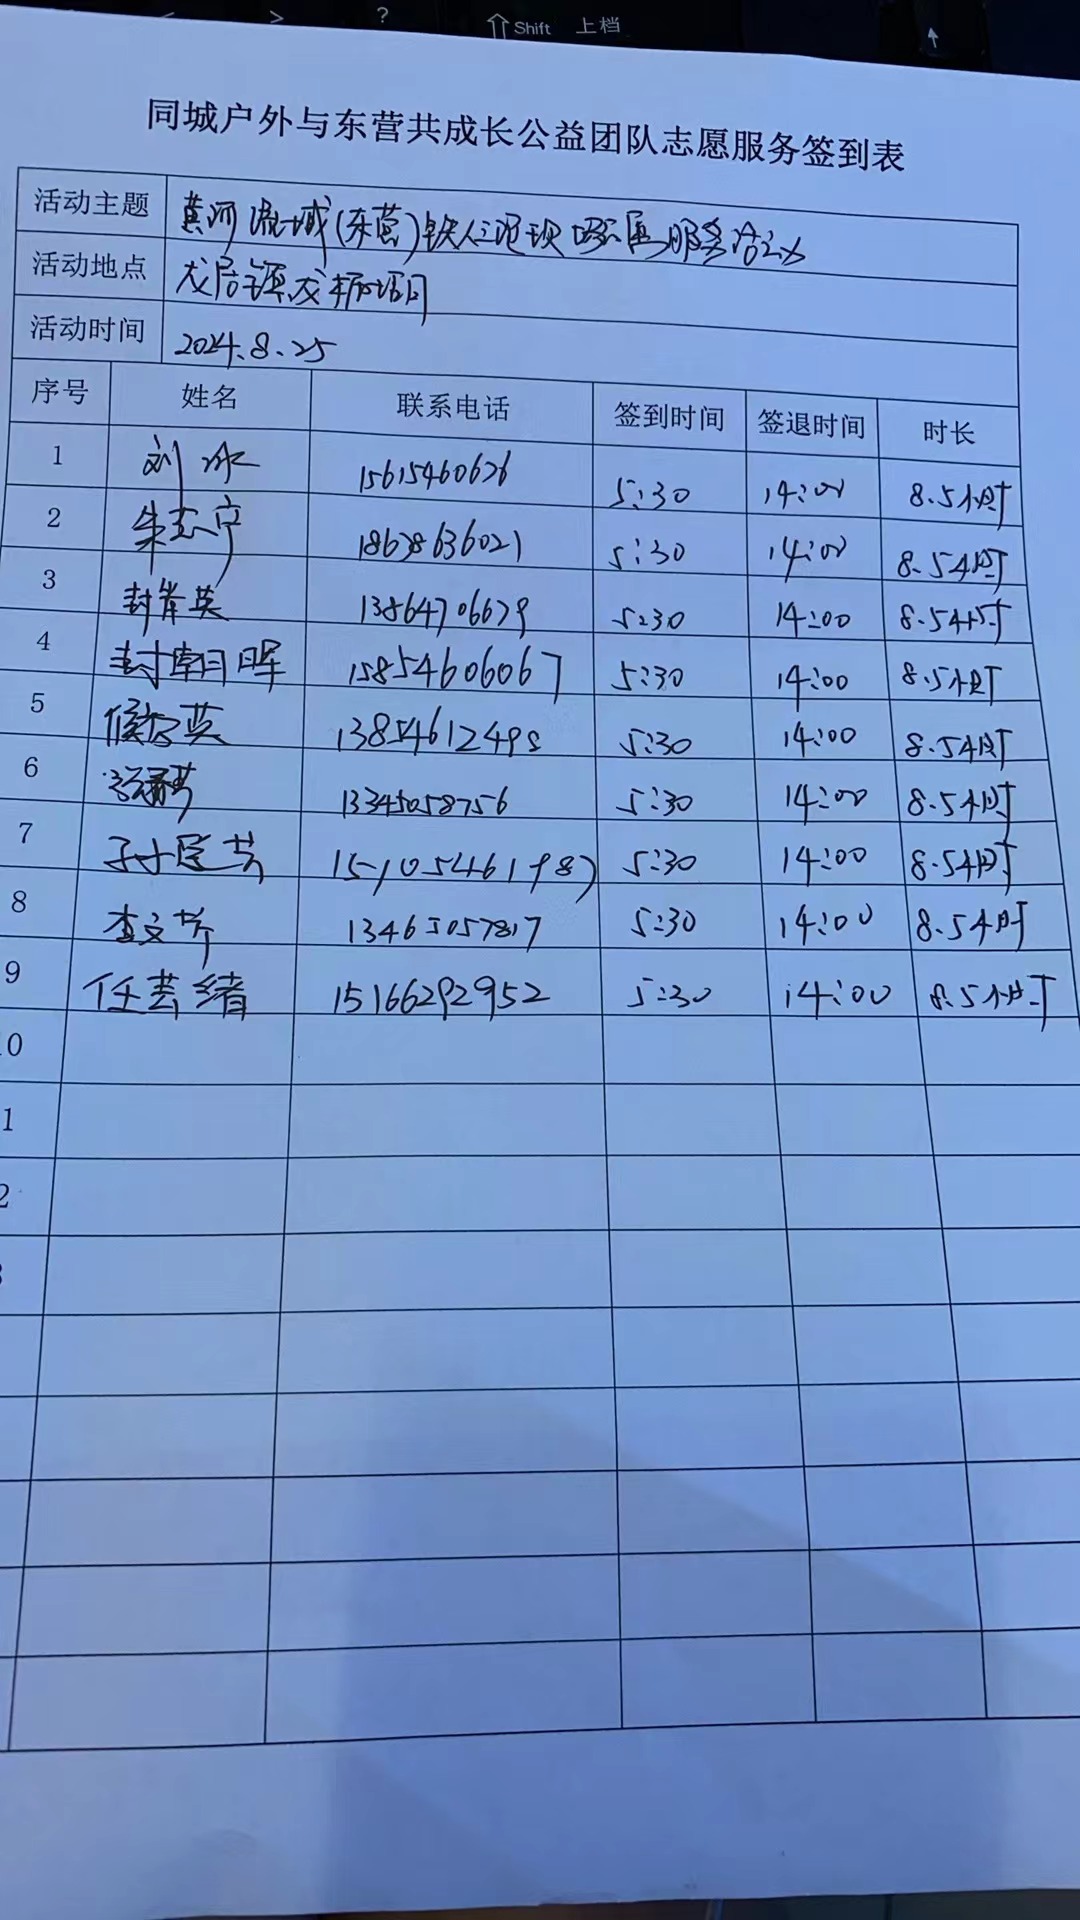 ? Shift 上档
同城户外与东营共成长公益团队志愿服务签到表
活动主题 黄河流域(东营)铁人三项 服务活动
活动地点 龙居镇龙栖项目
活动时间 2024.8.25
序号 姓名 联系电话 签到时间 签退时间 时长
1 刘冰 15615460626 5:30 14:00 8.5小时
2 朱志宁 18678636021 5:30 14:00 8.5小时
3 封肖英 13864706679 5:30 14:00 8.5小时
4 封朝晖 15854606067 5:30 14:00 8.5小时
5 侯 英 13854612495 5:30 14:00 8.5小时
6 13345058756 5:30 14:00 8.5小时
7 孙 芸 15105461987 5:30 14:00 8.5小时
8 李文芹 13465057817 5:30 14:00 8.5小时
9 任芸绪 15166292952 5:30 14:00 8.5小时
0
1
2
3